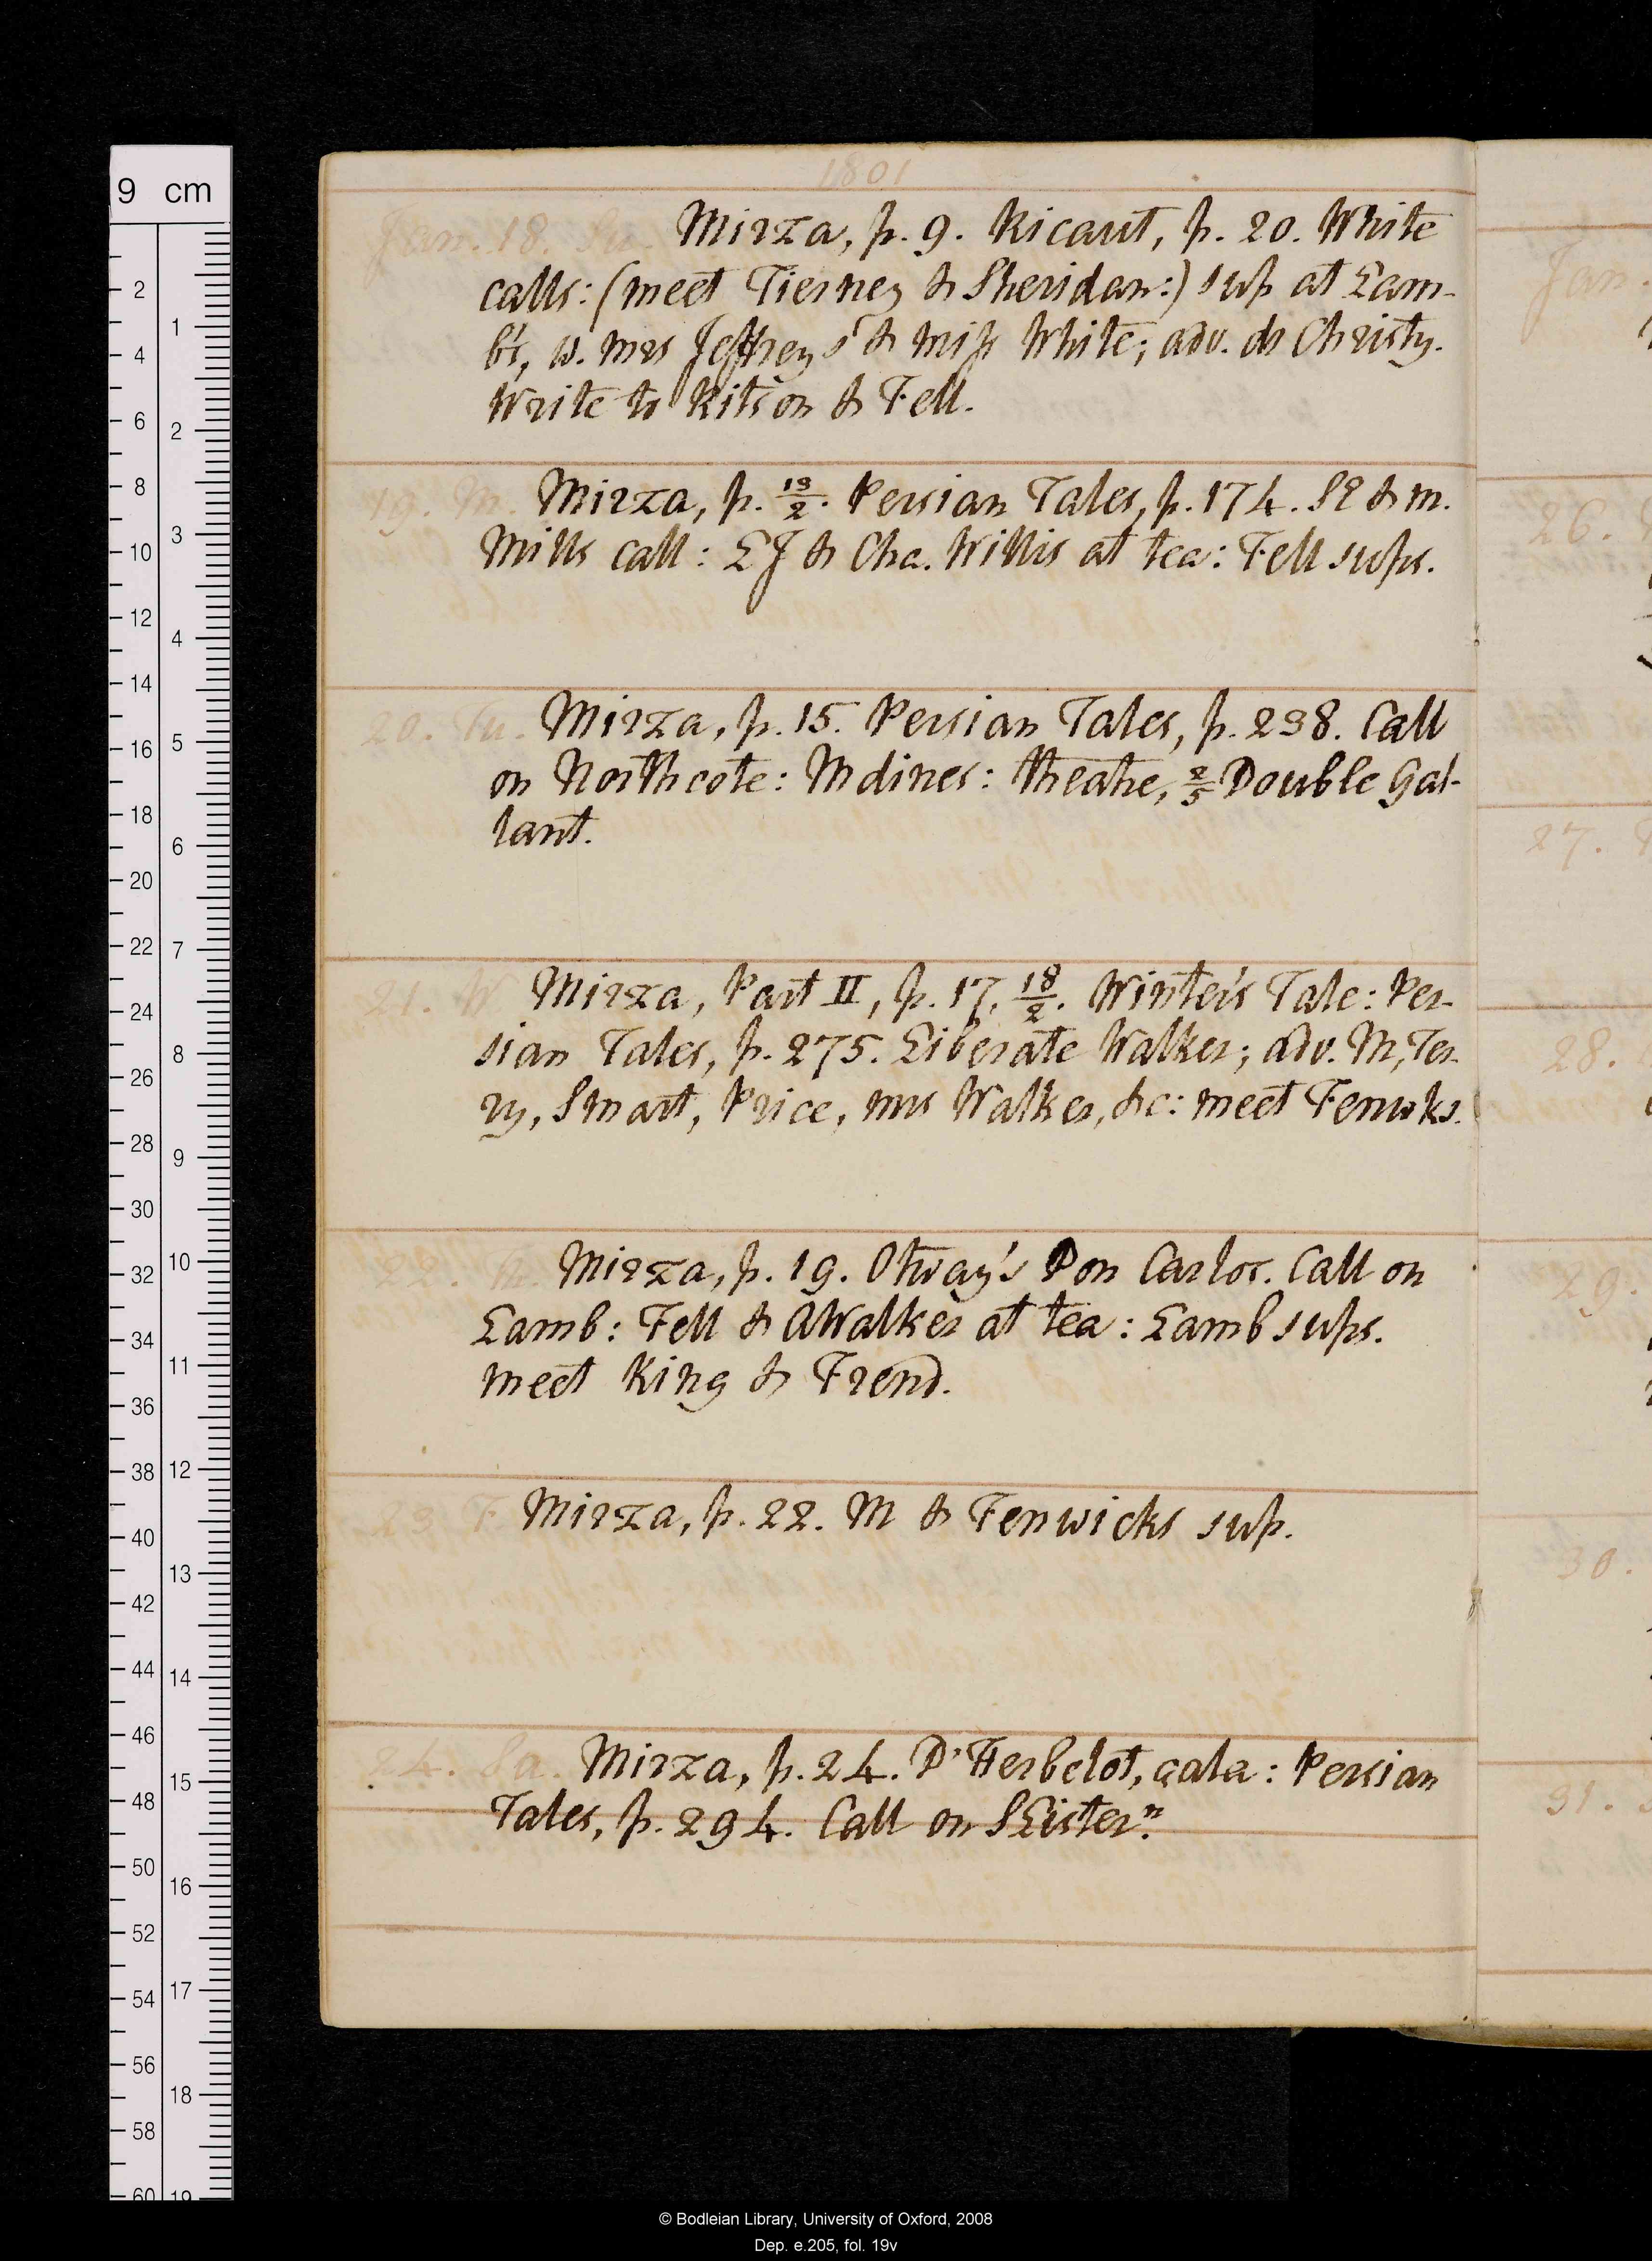 1801
Jan. 18. Su. Mirza, p. 9. Ricaut, p. 20. White
calls: (meet Tierney & Sheridan:) sup at Lam-
b's, w. mrs Jeffreys & miss White; adv. dr Christy.
Write to Ritson & Fell.
19. M. Mirza, p. 13/2. Persian Tales, p. 174. & M.
Mills call: LJ & Cha. Willis at tea: Fell sups.
20. Tu. Mirza, p. 15. Persian Tales, p. 238. Call
on Northcote: M dines: theatre, 2/5 Double Gal-
lant.
21. W Mirza, Part II, p. 17, 18/2. Winter's Tale: Per-
sian Tales, p. 275. Liberate Walker; adv. M, Ter-
ry, Smart, Price, mrs Walker, &c: meet Fenwks.
22. Th. Mirza, p. 19. Otway's Don Carlos. Call on
Lamb: Fell & A Walker at tea: Lamb sups.
meet King & Frend.
23 F Mirza, p. 22. M & Fenwicks sup.
24. Sa. Mirza, p. 24. D'Herbelot, çala: Persian
Tales, p. 294. Call on S Listern.
Jan.
26.
27.
28.
29.
30.
31.
9 cm
2
4
6
8
10
12
14
16
18
20
22
24
26
28
30
32
34
36
38
40
42
44
46
48
50
52
54
56
58
60
1
2
3
4
5
6
7
8
9
10
11
12
13
14
15
16
17
18
19
© Bodleian Library, University of Oxford, 2008
Dep. e.205, fol. 19v